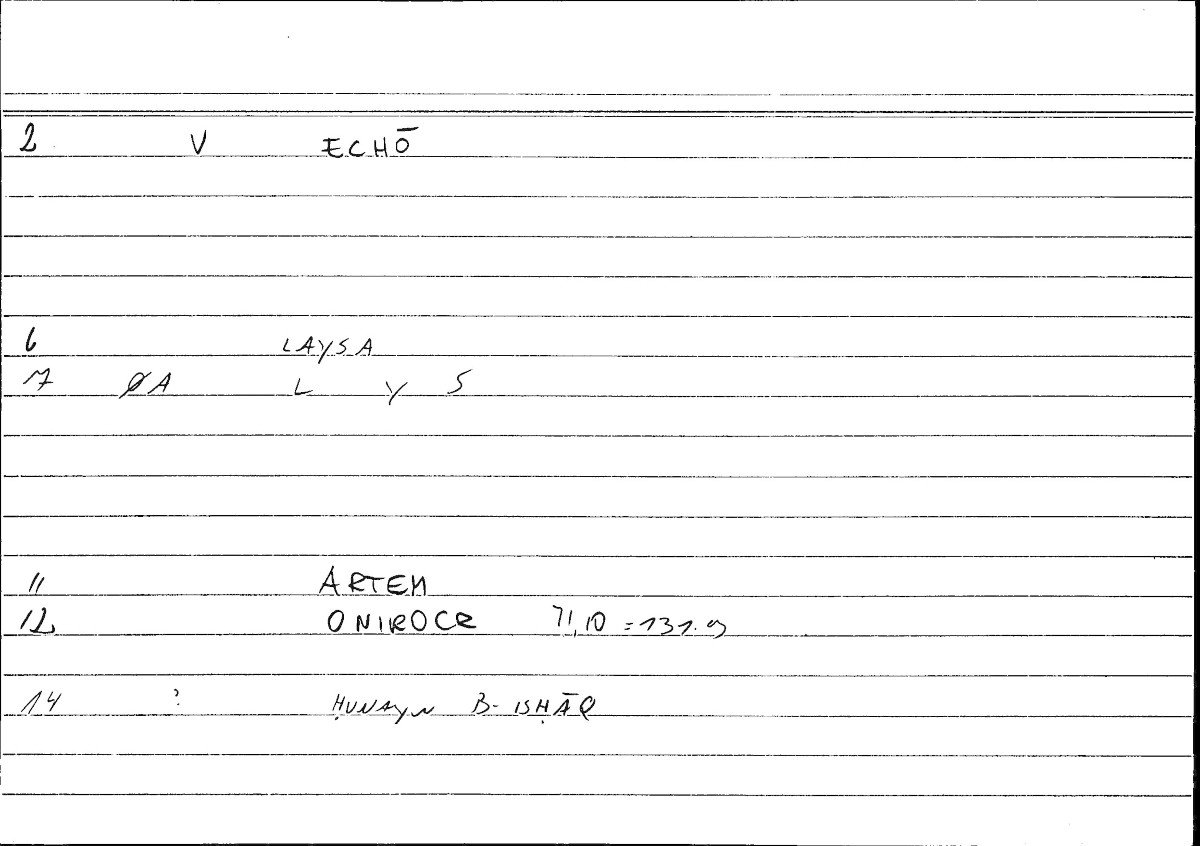 2 V ECHŌ
6 LAYSA
7 ØA L Y S
11 ARTEM
12 ONIROCR 71,10 = 131.9
14 ? ḤUNAYN B- ISḤĀQ